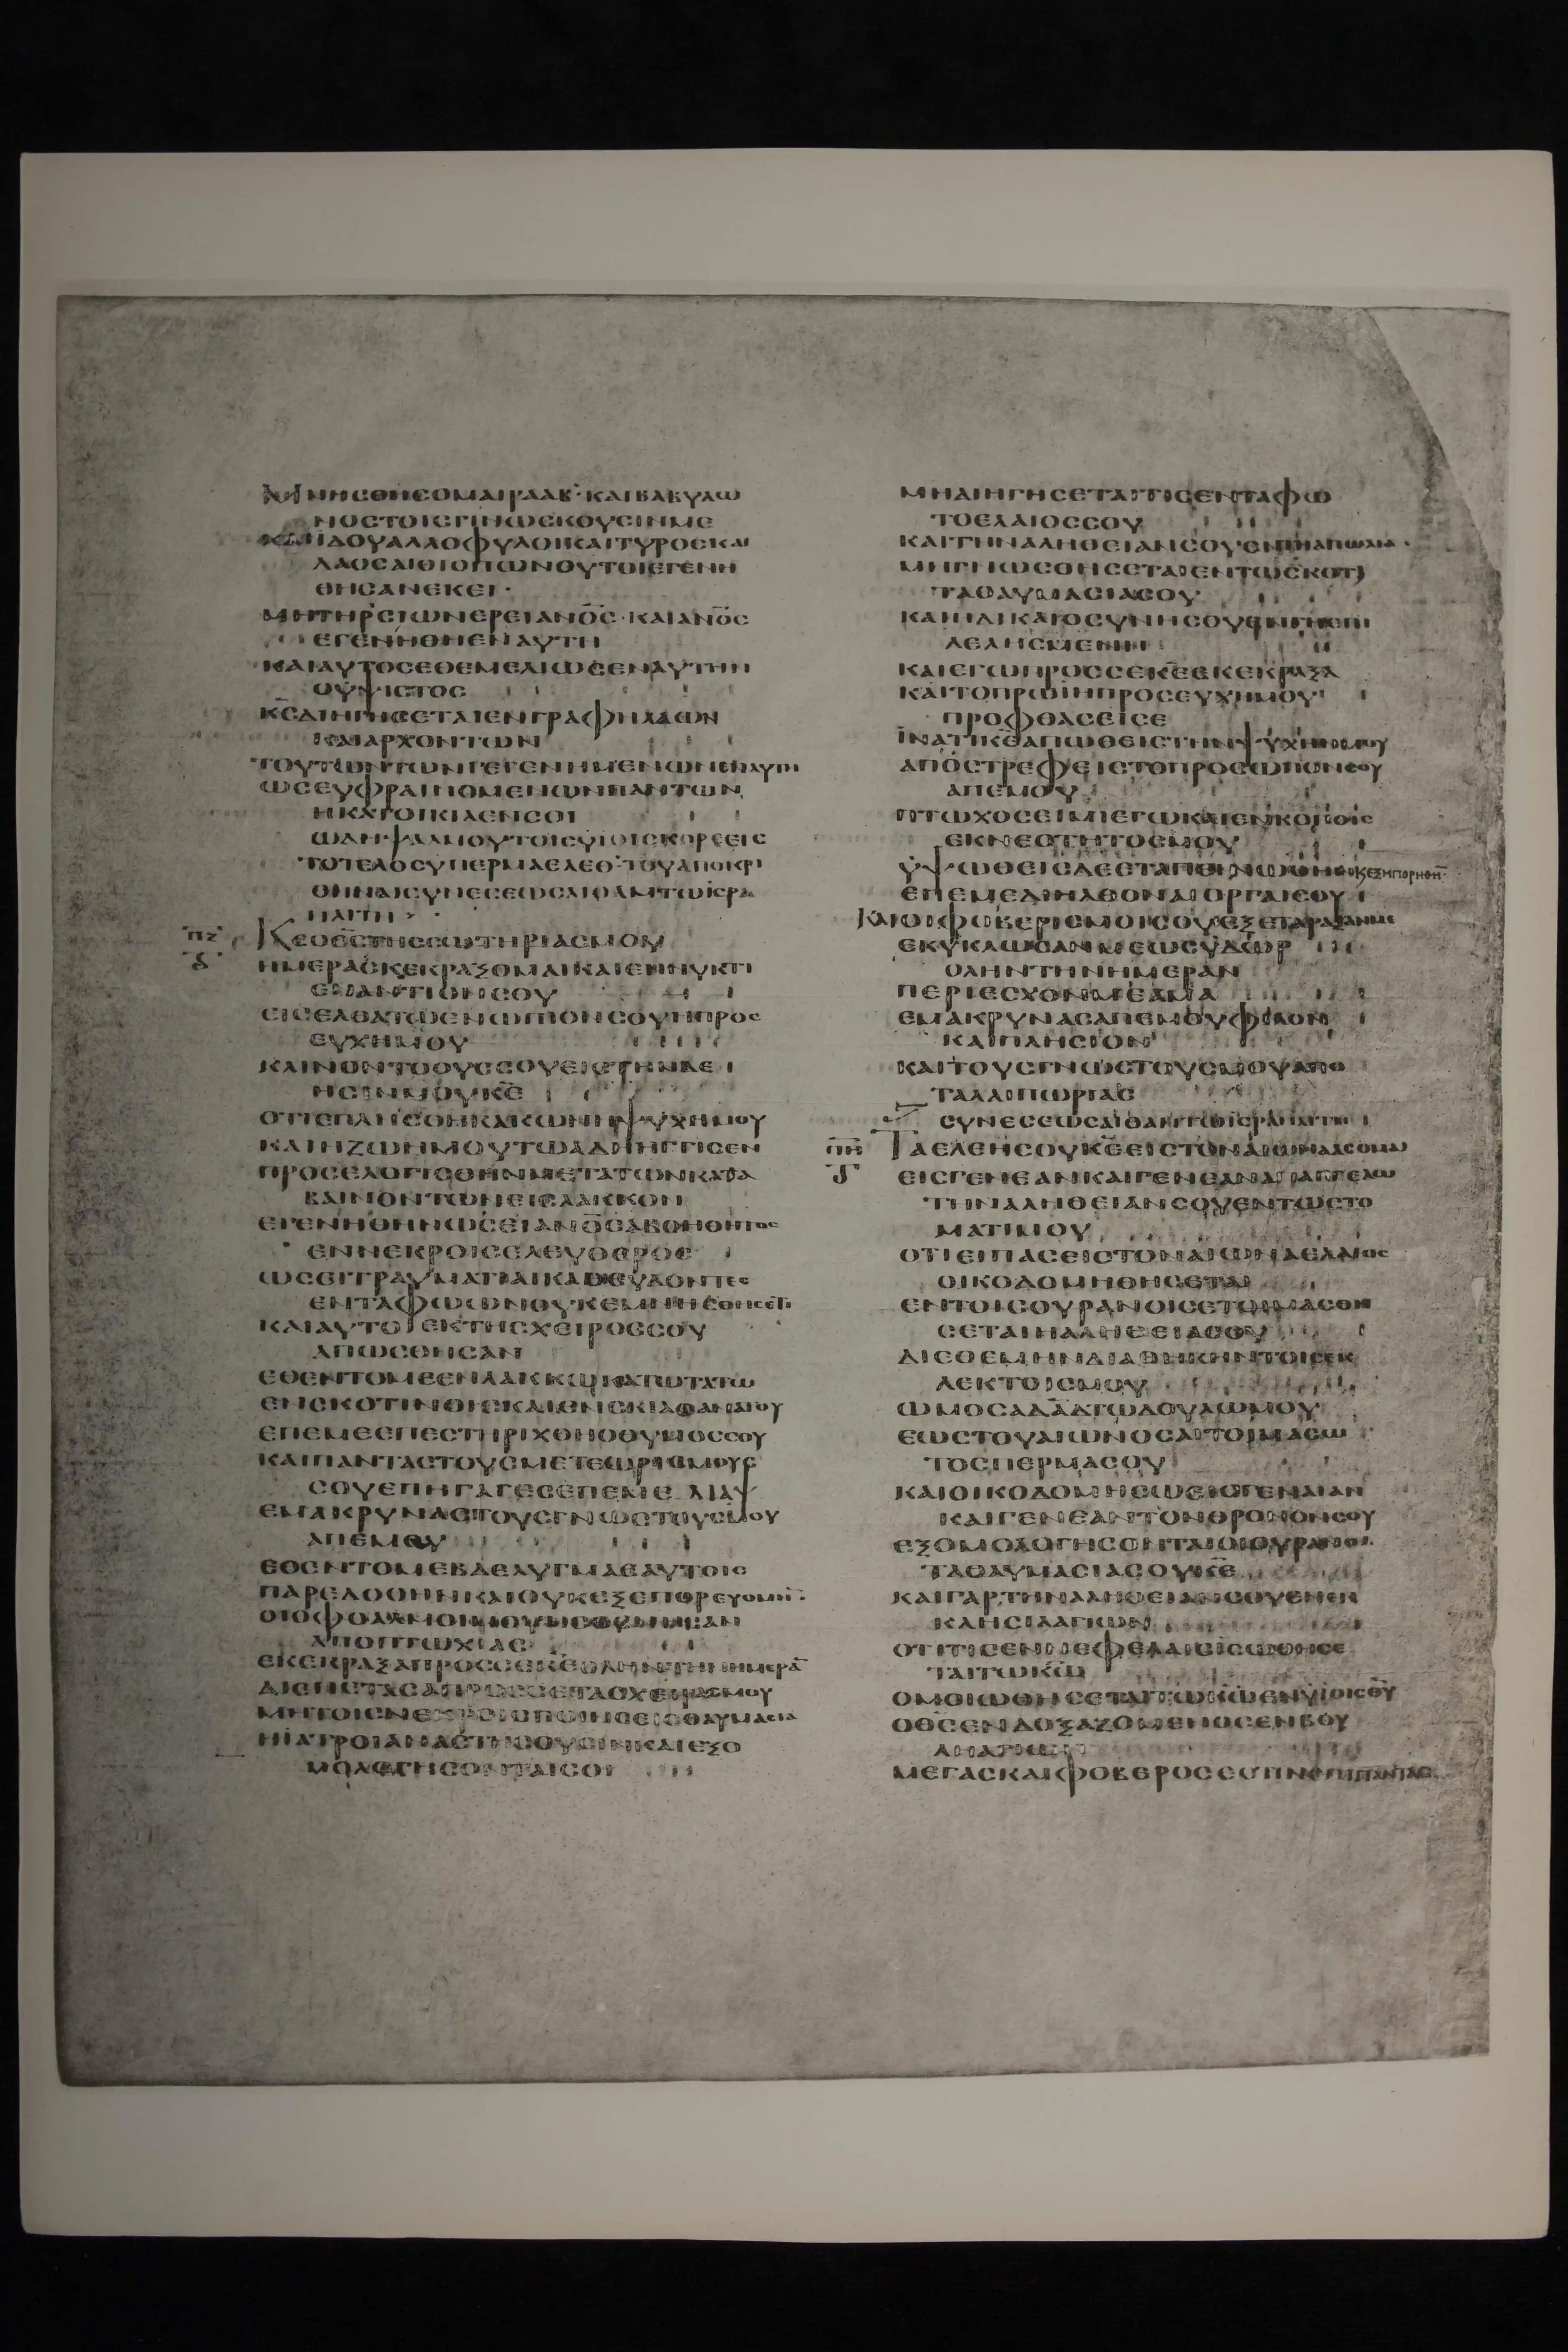 ΜΝΗCΘΗCΟΜΑΙΡΑΑΒ·ΚΑΙΒΑΒΥΛΩ
ΝΟCΤΟΙCΓΙΝΩCΚΟΥCΙΝΜΕ
ΚΑΙΙΔΟΥΑΛΛΟΦΥΛΟΙΚΑΙΤΥΡΟCΚΑΙ
ΛΑΟCΑΙΘΙΟΠΩΝΟΥΤΟΙΕΓΕΝΗ
ΘΗCΑΝΕΚΕΙ·
ΜΗΤΗΡCΙΩΝΕΡΕΙΑΝΟ̅C̅·ΚΑΙΑΝΟ̅C̅
ΕΓΕΝΗΘΗΕΝΑΥΤΗ
ΚΑΙΑΥΤΟCΕΘΕΜΕΛΙΩCΕΝΑΥΤΗΝ
ΟΥΨΙCΤΟC
Κ̅C̅ΔΙΗΓΗCΕΤΑΙΕΝΓΡΑΦΗΛΑΩΝ
ΚΑΙΑΡΧΟΝΤΩΝ
ΤΟΥΤΩΝΤΩΝΓΕΓΕΝΗΜΕΝΩΝΕΝΑΥΤΗ
ΩCΕΥΦΡΑΙΝΟΜΕΝΩΝΠΑΝΤΩΝ
ΗΚΑΤΟΙΚΙΑΕΝCΟΙ
ΩΔΗΨΑΛΜΟΥΤΟΙCΥΙΟΙCΚΟΡΕ
ΤΟΤΕΛΟCΥΠΕΡΜΑΕΛΕΘ·ΤΟΥΑΠΟΚΡΙ
ΘΗΝΑΙCΥΝΕCΕΩCΑΙΘΑΜΤΩΙCΡΑ
ΗΛΙΤΗ
ΠΖ ΚΕΟΘ̅C̅ΤΗCCΩΤΗΡΙΑCΜΟΥ
ΗΜΕΡΑCΚΕΚΡΑΞΟΜΑΙΚΑΙΕΝΝΥΚΤΙ
ΕΝΑΝΤΙΟΝCΟΥ
ΕΙCΕΛΘΑΤΩΕΝΩΠΙΟΝCΟΥΗΠΡΟC
ΕΥΧΗΜΟΥ
ΚΛΙΝΟΝΤΟΟΥCCΟΥΕΙCΤΗΝΔΕ
ΗCΙΝΜΟΥΚ̅Ε̅
ΟΤΙΕΠΛΗCΘΗΚΑΚΩΝΗΨΥΧΗΜΟΥ
ΚΑΙΗΖΩΗΜΟΥΤΩΑΔΗΗΓΓΙCΕΝ
ΠΡΟCΕΛΟΓΙCΘΗΝΜΕΤΑΤΩΝΚΑΤΑ
ΒΑΙΝΟΝΤΩΝΕΙCΛΑΚΚΟΝ
ΕΓΕΝΗΘΗΝΩCΕΙΑΝΟ̅C̅ΑΒΟΗΘΗΤΟC
ΕΝΝΕΚΡΟΙCΕΛΕΥΘΕΡΟC
ΕΝΤΑΦΩΩΝΟΥΚΕΜΝΗCΘΗCΕΤΙ
ΚΑΙΑΥΤΟΙΕΚΤΗCΧΕΙΡΟCCΟΥ
ΑΠΩCΘΗCΑΝ
ΕΘΕΝΤΟΜΕΕΝΛΑΚΚΩΚΑΤΩΤΑΤΩ
ΕΝCΚΟΤΙΝΟΙCΚΑΙΕΝCΚΙΑΘΑΝΑΤΟΥ
ΕΠΕΜΕΕΠΕCΤΗΡΙΧΘΗΟΘΥΜΟCCΟΥ
ΚΑΙΠΑΝΤΑCΤΟΥCΜΕΤΕΩΡΙCΜΟΥC
CΟΥΕΠΗΓΑΓΕCΕΠΕΜΕ ΔΙΑΨ
ΕΜΑΚΡΥΝΑCΤΟΥCΓΝΩCΤΟΥCΜΟΥ
ΑΠΕΜΟΥ
ΕΘΕΝΤΟΜΕΒΔΕΛΥΓΜΑΕΑΥΤΟΙC
ΠΑΡΕΔΟΘΗΝΚΑΙΟΥΚΕΞΕΠΟΡΕΥΟΜΗΝ
ΑΠΟΠΤΩΧΙΑC
ΕΚΕΚΡΑΞΑΠΡΟCCΕΚ̅Ε̅ΟΛΗΝΤΗΝΗΜΕΡΑ̅
ΔΙΕΠΕΤΑCΑΠΡΟCCΕΤΑCΧΕΙΡΑCΜΟΥ
ΜΗΤΟΙCΝΕΚΡΟΙCΠΟΙΗCΕΙCΘΑΥΜΑCΙΑ
ΗΙΑΤΡΟΙΑΝΑCΤΗCΟΥCΙΝΚΑΙΕΞΟ
ΜΟΛΟΓΗCΟΝΤΑΙCΟΙ
ΜΗΔΙΗΓΗCΕΤΑΙΤΙCΕΝΤΑΦΩ
ΤΟΕΛΑΙΟCCΟΥ
ΚΑΙΤΗΝΑΛΗΘΕΙΑΝCΟΥΕΝΤΗΑΠΩΛΙΑ·
ΜΗΓΝΩCΘΗCΕΤΑΙΕΝΤΩCΚΟΤΙ
ΤΑΘΑΥΜΑCΙΑCΟΥ
ΚΑΙΗΔΙΚΑΙΟCΥΝΗCΟΥΕΝΓΗΕΠΙ
ΛΕΛΗCΜΕΝΗ
ΚΑΙΕΓΩΠΡΟCCΕΚ̅Ε̅ΕΚΕΚΡΑΞΑ
ΚΑΙΤΟΠΡΩΙΗΠΡΟCΕΥΧΗΜΟΥ
ΠΡΟΦΘΑCΕΙCΕ
ΙΝΑΤΙΚ̅Ε̅ΑΠΩΘΕΙCΤΗΝΨΥΧΗΝΜΟΥ
ΑΠΟCΤΡΕΦΕΙCΤΟΠΡΟCΩΠΟΝCΟΥ
ΑΠΕΜΟΥ
ΠΤΩΧΟCΕΙΜΙΕΓΩΚΑΙΕΝΚΟΠΟΙC
ΕΚΝΕΟΤΗΤΟCΜΟΥ
ΕΠΕΜΕΔΙΗΛΘΟΝΑΙΟΡΓΑΙCΟΥ
ΚΑΙΟΙΦΟΒΕΡΙCΜΟΙCΟΥΕΞΕΤΑΡΑΞΑΝΜΕ
ΕΚΥΚΛΩCΑΝΜΕΩCΥΔΩΡ
ΟΛΗΝΤΗΝΗΜΕΡΑΝ
ΠΕΡΙΕCΧΟΝΜΕΑΜΑ
ΕΜΑΚΡΥΝΑCΑΠΕΜΟΥΦΙΛΟΝ
ΚΑΙΠΛΗCΙΟΝ
ΚΑΙΤΟΥCΓΝΩCΤΟΥCΜΟΥΑΠΟ
ΤΑΛΑΙΠΩΡΙΑC
CΥΝΕCΕΩCΑΙΘΑΝΤΩΙCΡΑΗΛΙΤΗ
ΠΗ ΤΑΕΛΕΗCΟΥΚ̅Ε̅ΕΙCΤΟΝΑΙΩΝΑΑCΟΜΑΙ
ΕΙCΓΕΝΕΑΝΚΑΙΓΕΝΕΑΝΑΠΑΓΓΕΛΩ
ΤΗΝΑΛΗΘΕΙΑΝCΟΥΕΝΤΩCΤΟ
ΜΑΤΙΜΟΥ
ΟΤΙΕΙΠΑCΕΙCΤΟΝΑΙΩΝΑΕΛΑΙΟC
ΟΙΚΟΔΟΜΗΘΗCΕΤΑΙ
ΕΝΤΟΙCΟΥΡΑΝΟΙCΕΤΟΙΜΑCΘΗ
CΕΤΑΙΗΑΛΗΘΕΙΑCΟΥ
ΔΙΕΘΕΜΗΝΔΙΑΘΗΚΗΝΤΟΙCΕΚ
ΛΕΚΤΟΙCΜΟΥ
ΩΜΟCΑΔΑ̅Δ̅ΤΩΔΟΥΛΩΜΟΥ
ΕΩCΤΟΥΑΙΩΝΟCΑΙΤΟΙΜΑCΩ
ΤΟCΠΕΡΜΑCΟΥ
ΚΑΙΟΙΚΟΔΟΜΗCΩΕΙCΓΕΝΑΙΑΝ
ΚΑΙΓΕΝΕΑΝΤΟΝΘΡΟΝΟΝCΟΥ
ΕΞΟΜΟΛΟΓΗCΟΝΤΑΙΟΙΟΥΡΑΝΟΙ
ΤΑΘΑΥΜΑCΙΑCΟΥΚ̅Ε̅
ΚΑΙΓΑΡΤΗΝΑΛΗΘΕΙΑΝCΟΥΕΝΕΚ
ΚΛΗCΙΑΑΓΙΩΝ
ΟΤΙΤΙCΕΝΝΕΦΕΛΑΙCΙCΩΘΗCΕ
ΤΑΙΤΩΚ̅Ω̅
ΟΜΟΙΩΘΗCΕΤΑΙΤΩΚ̅Ω̅ΕΝΥΙΟΙCΘ̅Υ̅
ΟΘ̅C̅ΕΝΔΟΞΑΖΟΜΕΝΟCΕΝΒΟΥ
ΜΕΓΑCΚΑΙΦΟΒΕΡΟCΕCΤΙΝΕΠΙΠΑΝΤΑC